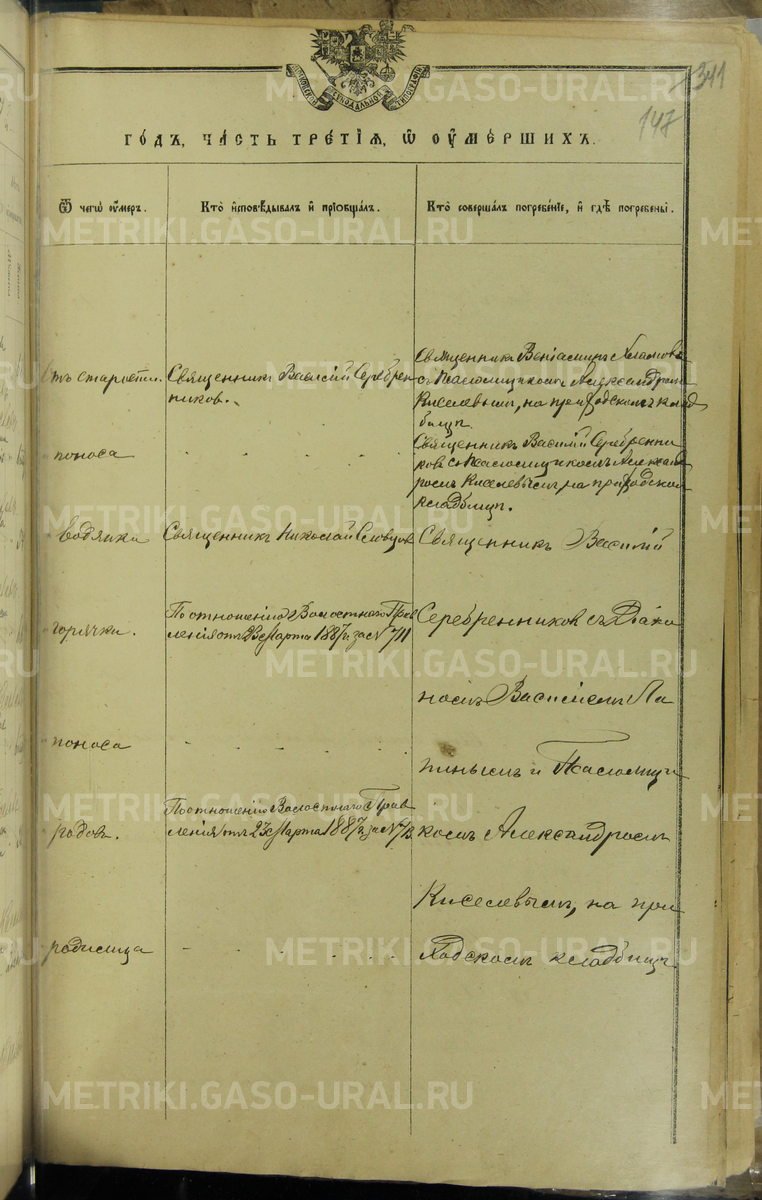 341
147
МОСКОВСКОЙ СѴНОДАЛЬНОЙ ТИПОГРАФІИ
ГО́ДЪ, ЧА́СТЬ ТРЕ́ТІЯ, Ѡ҆ ОУ҆МЕ́РШИХЪ.
Ѿ чегѡ̀ оу҆́меръ.
Кто̀ и҆сповѣ́дывалъ и҆ пріѻбща́лъ.
Кто̀ соверша́лъ погребе́нїе, и҆ гдѣ̀ погребены̀.
отъ старости.
Священникъ Василій Серебрен-
никовъ.
Священникъ Веніаминъ
съ Псаломщикомъ Александромъ
Киселевымъ, на приходскомъ клад
бищѣ.
поноса
Священникъ Василій Серебренни
ковъ съ Псаломщикомъ Александ
ромъ Киселевымъ, на приходскомъ
кладбищѣ.
водянка
Священникъ Николай Словцовъ
Священникъ Василій
горячки.
По отношенію Волостнаго Прав
ленія отъ 23 Марта 1887 г. за № 711
Серебренниковъ съ Діако
номъ Василіемъ Ла
поноса
пинымъ и Псаломщи
родовъ.
По отношенію Волостнаго Прав
ленія отъ 23 Марта 1887 г. за №
комъ Александромъ
Киселевымъ, на при
родимца
ходскомъ кладбищѣ
METRIKI.GASO-URAL.RU